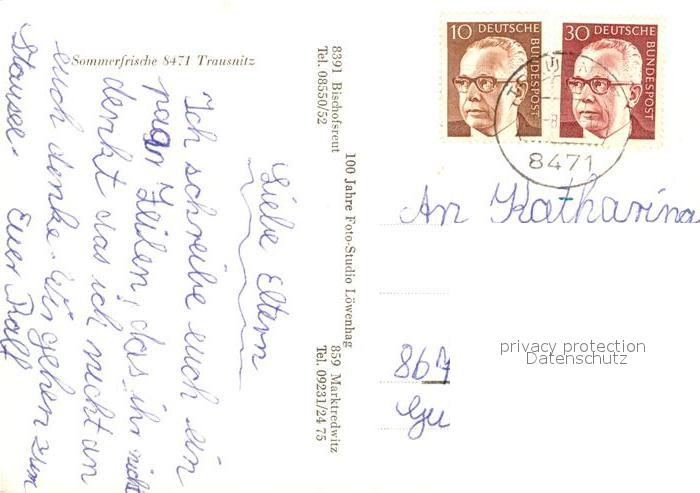 Sommerfrische 8471 Trausnitz
Liebe Eltern
Ich schreibe euch ein
paar Zeilen, das ihr nicht
denkt das ich nicht an
euch denke. Wir gehen zum
Stausee. Euer Ralf
8391 Bischofsreut
Tel. 08550/52
100 Jahre Foto-Studio Löwenhag
859 Marktredwitz
Tel. 09231/24 75
10 DEUTSCHE BUNDESPOST
30 DEUTSCHE BUNDESPOST
8471
An Katharina
867
Gu
privacy protection
Datenschutz